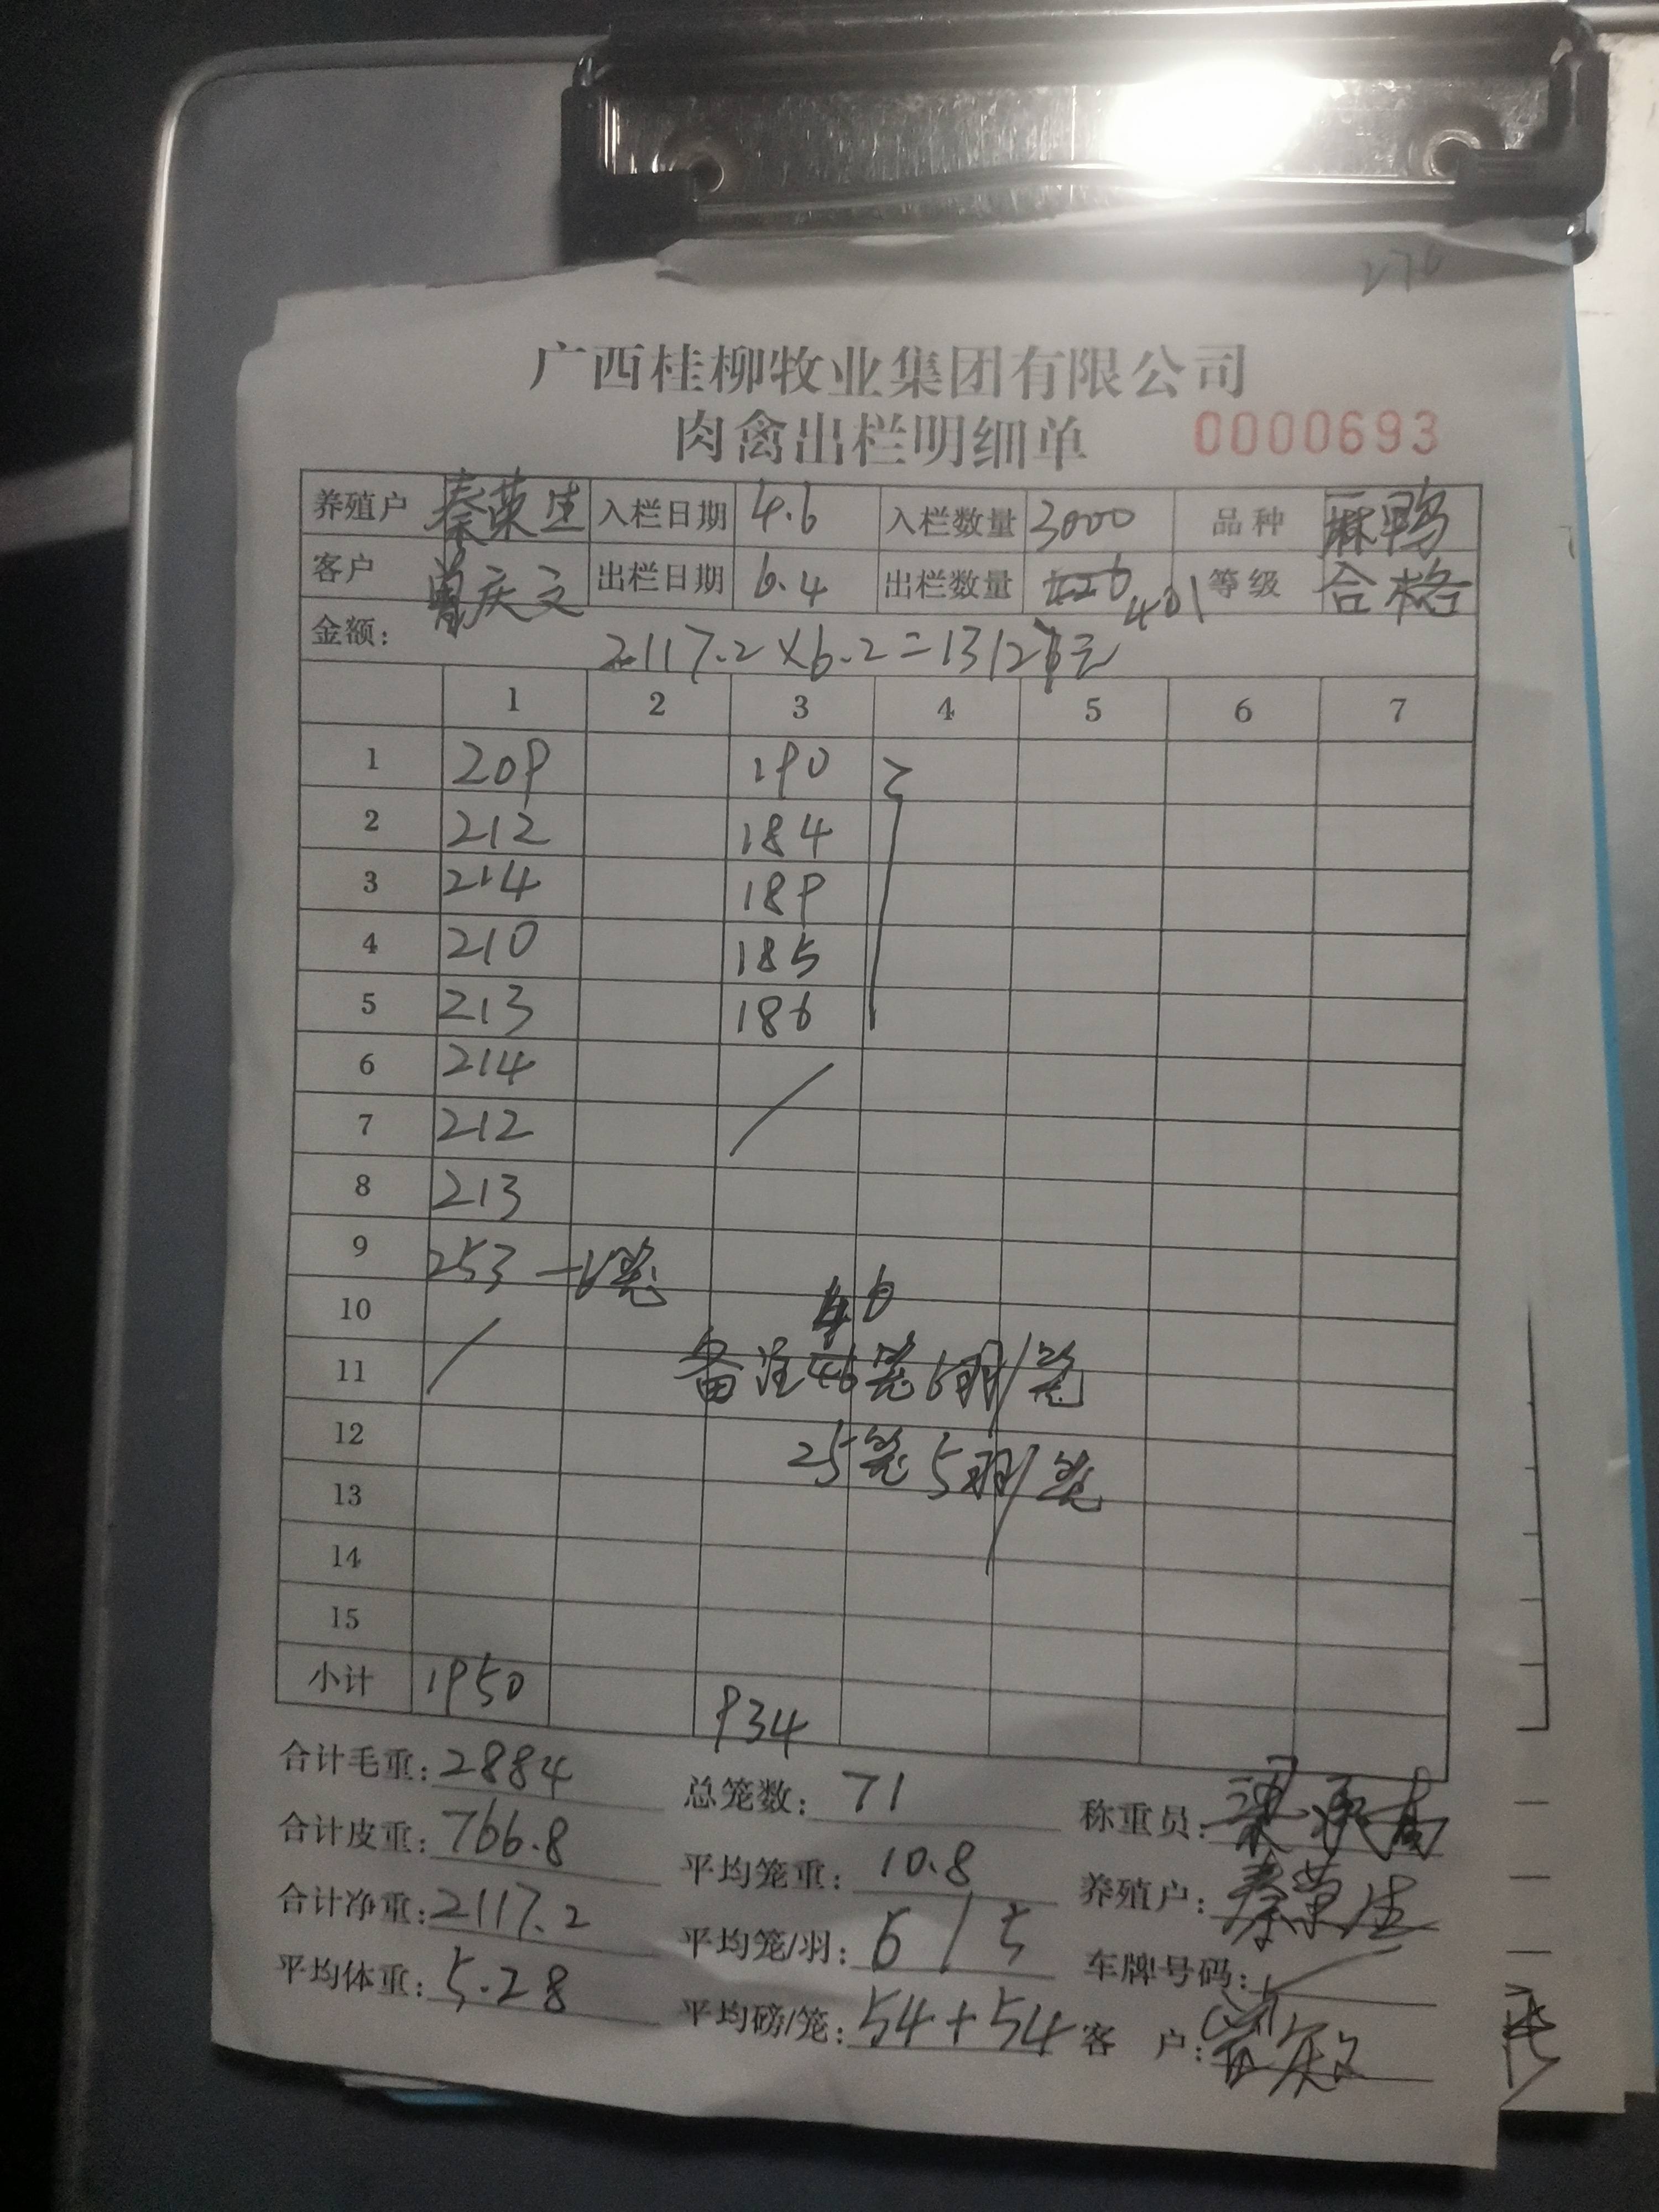 广西桂柳牧业集团有限公司
肉禽出栏明细单 0000693
养殖户 秦荣生 入栏日期 4.6 入栏数量 3000 品种 麻鸭
客户 曾庆文 出栏日期 6.4 出栏数量 401 等级 合格
金额: 2117.2×6.2=13127元
1 2 3 4 5 6 7
1 209 190
2 212 184
3 214 189
4 210 185
5 213 186
6 214
7 212
8 213
9 253 —6笼
10 46
11 备注 46笼6羽/笼
12 25笼5羽/笼
13
14
15
小计 1950 934
合计毛重: 2884 总笼数: 71 称重员:
合计皮重: 766.8 平均笼重: 10.8 养殖户: 秦荣生
合计净重: 2117.2 平均笼/羽: 6/5 车牌号码:
平均体重: 5.28 平均磅/笼: 54+54 客户: